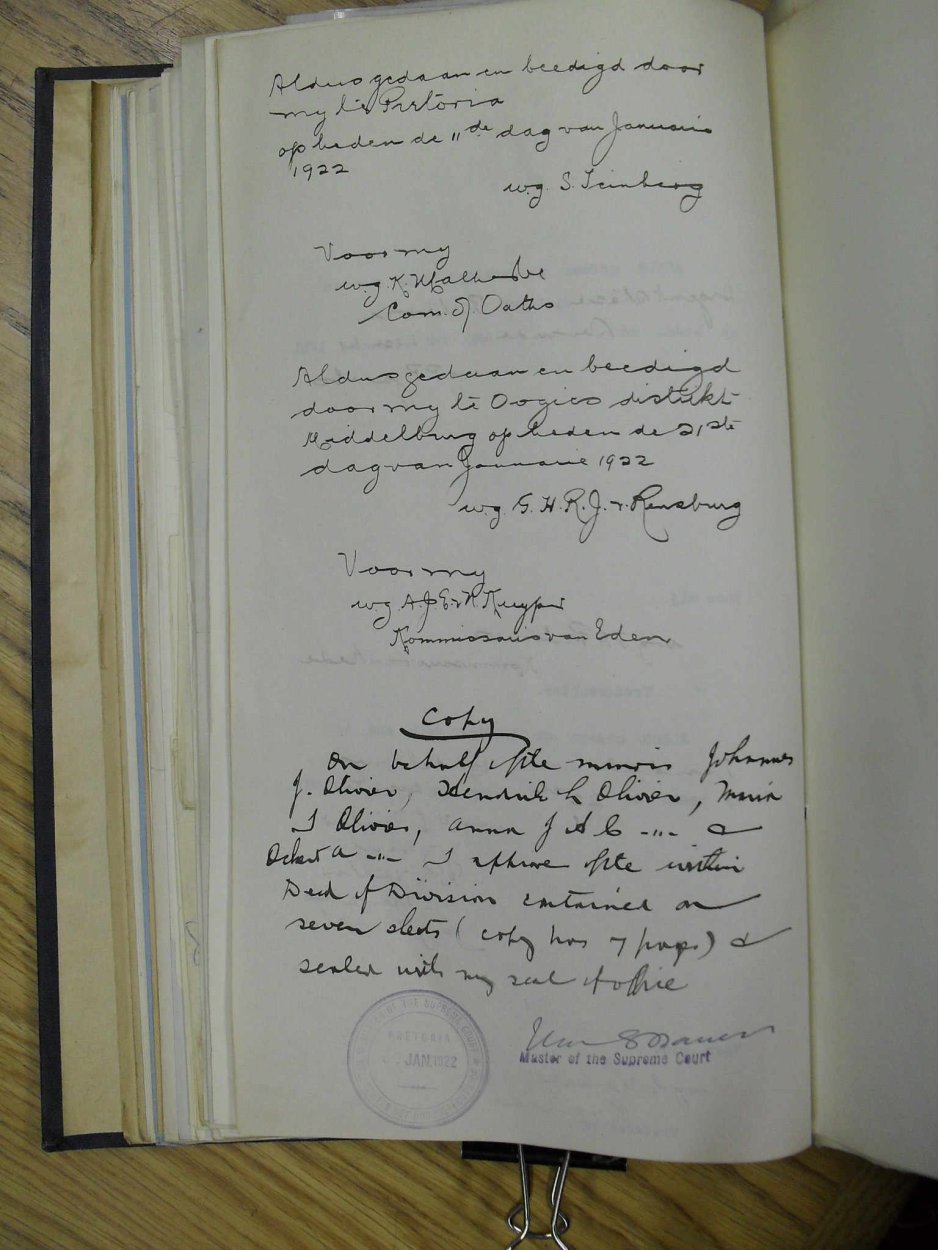 Aldus gedaan en beedigd door
my te Pretoria
op heden de 11de dag van Januarie
1922
wg. S. Teinberg
Voor my
wg. K. Malherbe
Com. of Oaths
Aldus gedaan en beedigd
door my te Oogies distrikt
Middelburg op heden de 21ste
dag van Januarie 1922
wg. G. H. R. J. v. Rensburg
Voor my
wg. A. J. E. v R Kuyper
Kommissaris van Eden
Copy
On behalf of the minors Johannes
J. Olivier, Hendrik C Olivier, Maria
J Olivier, Anna J A C -"- &
A -"- I approve of the within
Deed of Division contained on
seven sheets (copy has 7 pages) &
sealed with my seal of office
MASTER OF THE SUPREME COURT
PRETORIA
JAN. 1922
Master of the Supreme Court